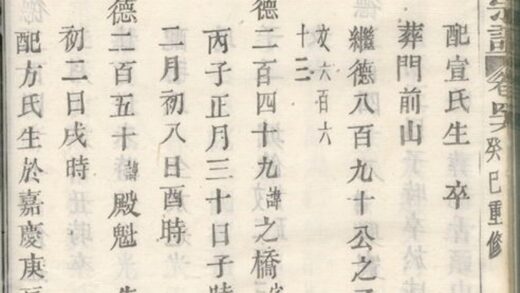 宗譜 卷 癸巳重修
配宣氏生 卒
葬門前山
繼德八百九十公之
文六百六
十三
德二百四十九諱之橋
丙子正月三十日子時
二月初八日酉時
德二百五十諱殿魁
初二日戌時
配方氏生於嘉慶庚